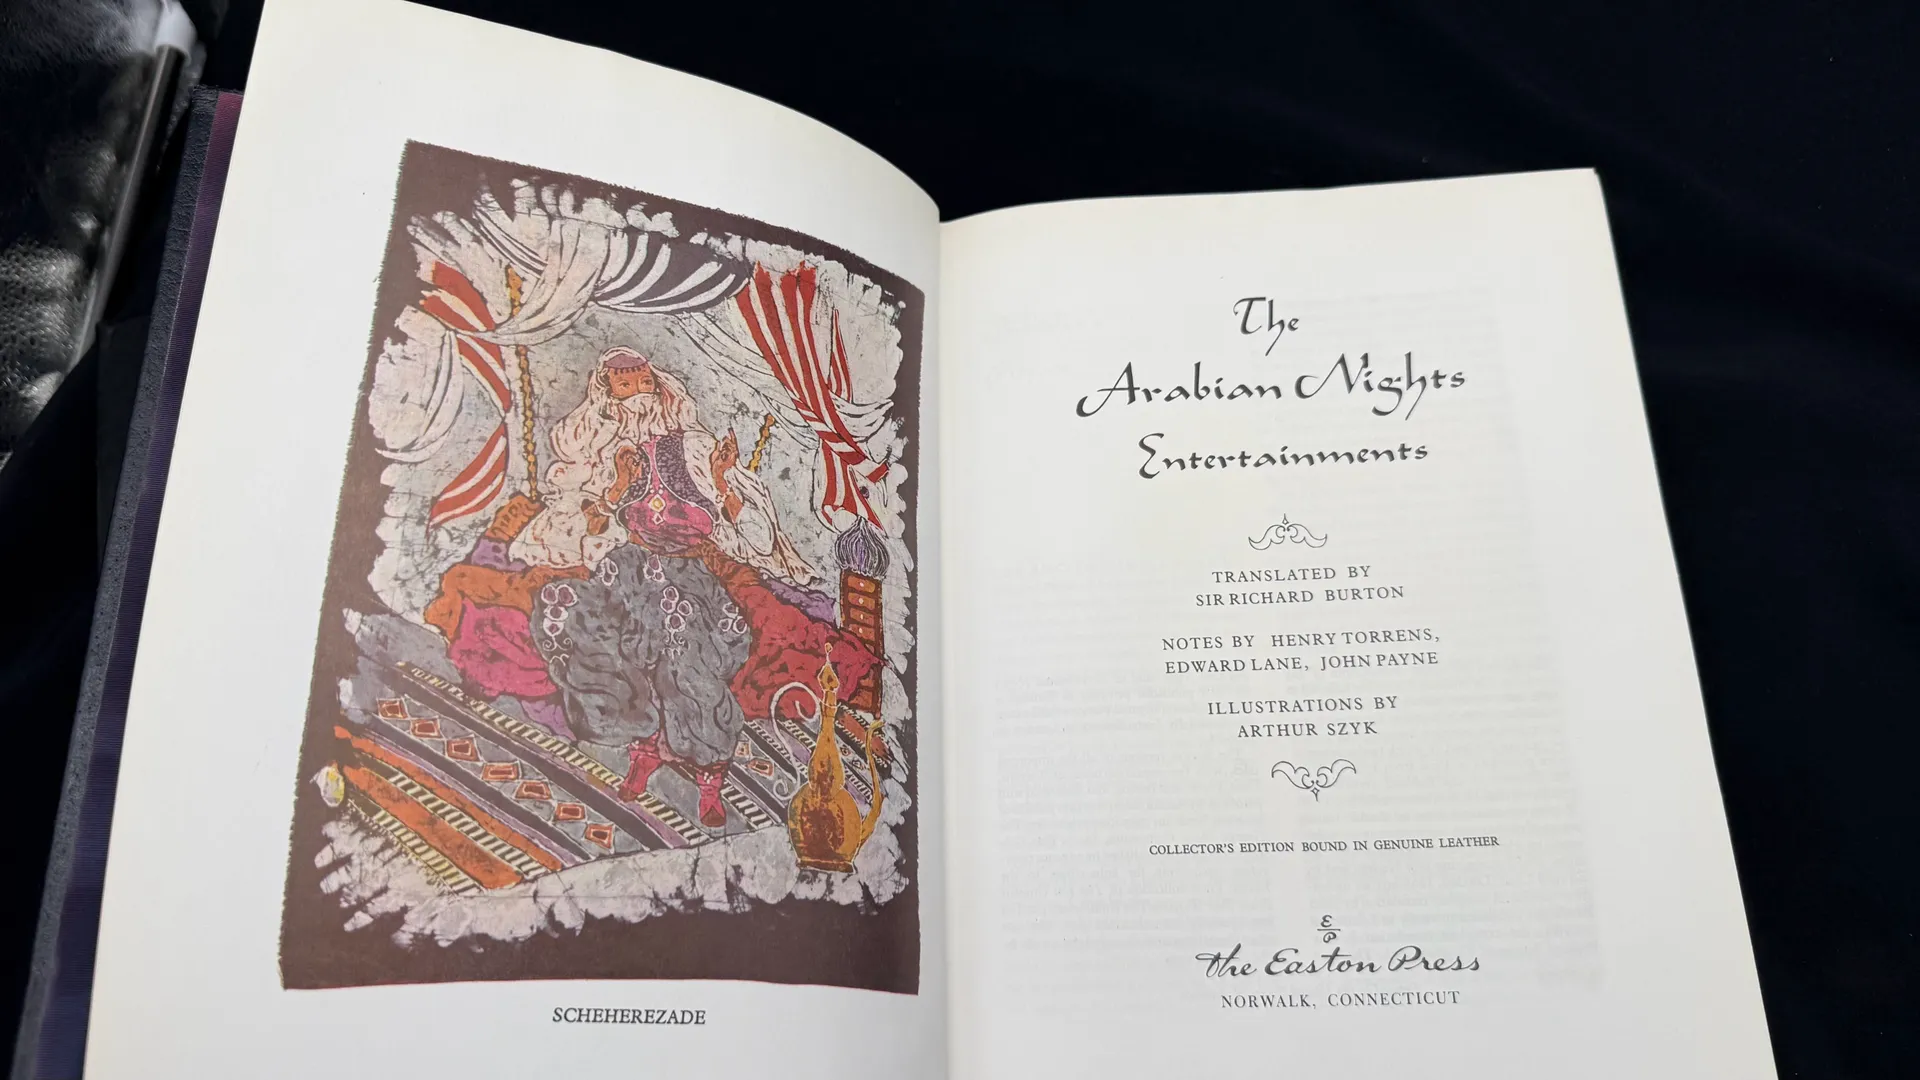 SCHEHEREZADE
The
Arabian Nights
Entertainments
TRANSLATED BY
SIR RICHARD BURTON
NOTES BY HENRY TORRENS,
EDWARD LANE, JOHN PAYNE
ILLUSTRATIONS BY
ARTHUR SZYK
COLLECTOR'S EDITION BOUND IN GENUINE LEATHER
EP
The Easton Press
NORWALK, CONNECTICUT